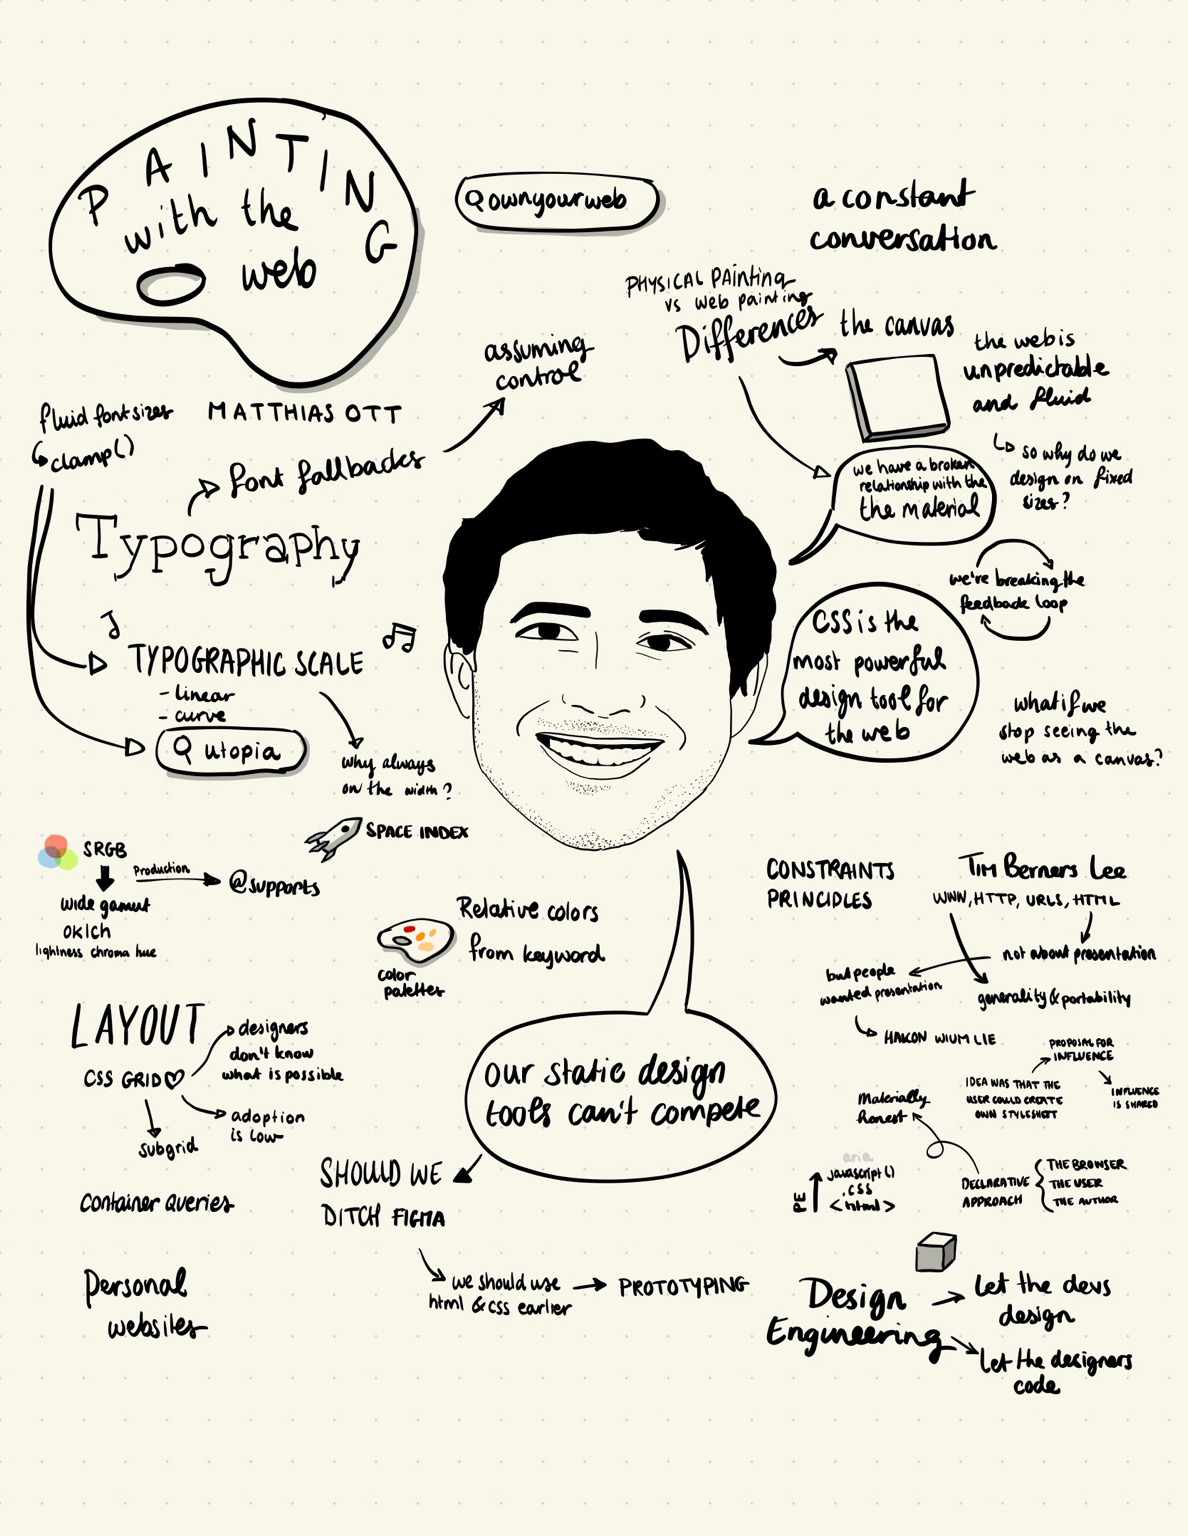 PAINTING
with the
web
MATTHIAS OTT
ownyourweb
a constant
conversation
PHYSICAL PAinting
vs web painting
Differences
the canvas
the web is
unpredictable
and fluid
so why do we
design on fixed
sizes?
we have a broken
relationship with the
the material
we're breaking the
feedback loop
CSS is the
most powerful
design tool for
the web
what if we
stop seeing the
web as a canvas?
assuming
control
fluid font sizes
clamp()
font fallbacks
Typography
TYPOGRAPHIC SCALE
- linear
- curve
utopia
why always
on the width?
SPACE INDEX
SRGB
Production
@supports
wide gamut
OKlCh
lightness chroma hue
Relative colors
from keyword
color
palettes
LAYOUT
CSS GRID
designers
don't know
what is possible
adoption
is low
subgrid
Container queries
Personal
websites
our static design
tools can't compete
SHOULD WE
DITCH FIGMA
we should use
html & css earlier
PROTOTYPING
CONSTRAINTS
PRINCIDLES
Tim Berners Lee
WWW, HTTP, URLS, HTML
not about presentation
generality & portability
but people
wanted presentation
HAKON WIUM LIE
PROPOSAL FOR
INFLUENCE
IDEA WAS THAT THE
USER COULD CREATE
OWN STYLESHEET
INFLUENCE
IS SHARED
Materially
honest
DECLARATIVE
APPROACH
THE BROWSER
THE USER
THE AUTHOR
PE
aria
javascript()
.css
<html>
Design
Engineering
Let the devs
design
Let the designers
code